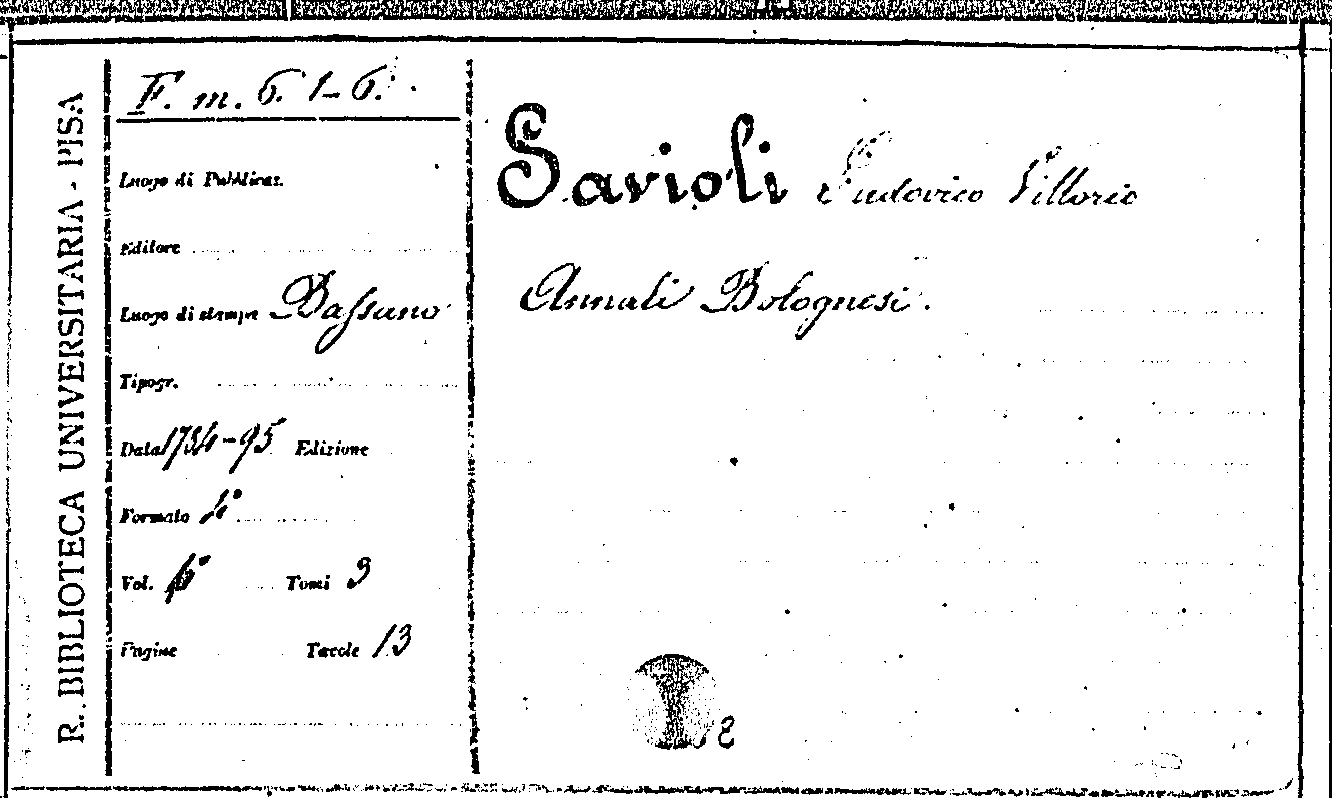 R. BIBLIOTECA UNIVERSITARIA - PISA
F. m. 6. 1-6.
Luogo di Pubblicaz.
Editore
Luogo di stampa Bassano
Tipogr.
Data 1784-95 Edizione
Formato 4°
Vol. Tomi 3
Pagine Tavole 13
Savioli Ludovico Vittorio
Annali Bolognesi.